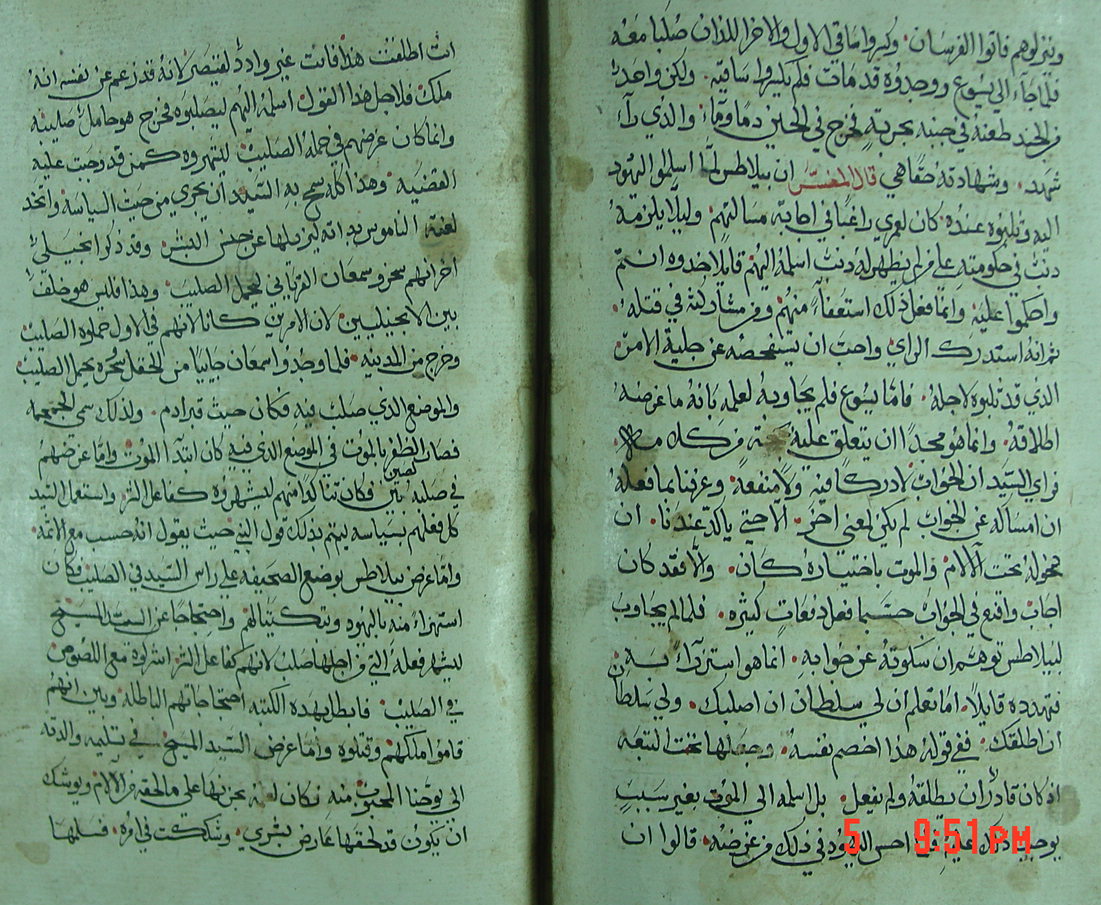 وينزلوهم فاتوا الفرسان وكسروا ساقي الاول والاخر اللذان صلبا معه
فلما جاء الى يسوع ووجدوه قد مات فلم يكسروا ساقيه ولكن واحدا
من الجند طعنه في جنبه بحربة فخرج في الحين دما وماء والذي راء
شهد وشهادته حقا هي قال المفسر ان بيلاطس لما اسلموا اليهود
اليه وثلبوه عنده كان لعمري راغبا في اجابة مسالتهم وليلا يلزمه
دنب في حكومته علي من لم يظهر له دنب اسلمه اليهم قايلا خدوه انتم
واحكموا عليه وانما فعل ذلك استعفاء منهم ومن مشاركته في قتله
ثم انه استدرك الراي واحب ان يستفحصه عن جلية الامر
الذي قد ثلبوه لاجله فاما يسوع فلم يجاوبه لعلمه بانه ما غرضه
اطلاقه وانما هو مجدا ان يتعلق عليه بحجة من كلامه
فراي السيد ان الجواب لا درك فيه ولا منفعة وعرفنا بما فعله
ان امساكه عن الجواب لم يكن لمعنى اخر الا حتي ياكد عندنا ان
دخوله تحت الالام والموت باختياره كان والا فقد كان
اجاب واقنع في الجواب حسبما فعل دفعات كثيره فلما لم يجاوب
لبيلاطس توهم ان سكوته عن جوابه انما هو استزراء به
فتهدده قايلا اما تعلم ان لي سلطان ان اصلبك ولي سلطان
ان اطلقك ففي قوله هذا اخصم نفسه وجعلها تحت التبعه
اذ كان قادرا ان يطلقه ولم يفعل بل اسلمه الي الموت بغير سبب
يوجب ذلك عليه فلما احس اليهود في ذلك من غرضه قالوا ان
انت اطلقت هذا فانت غير وادد لقيصر لانه قد زعم عن نفسه انه
ملك فلاجل هذا القول اسلمه اليهم ليصلبوه فخرج هو حامل صليبه
وانما كان غرضهم في حمله الصليب ليشهروه كمن قد وجبت عليه
القضيه وهذا كله سمح به السيد ان يجري من حيث السياسة واتخد
لعنة الناموس بداته ليزيلها عن جنس البشر وقد ذكروا انجيلي
اخر انهم سخروا سمعان القرياني ليحمل الصليب وهذا فليس هو خلفا
بين الانجيليين لان الامرين كانا لانهم في الاول حملوه الصليب
وخرج من المدينه فلما وجدوا سمعان جاييا من الحقل سخروه بحمل الصليب
والموضع الذي صلب فيه فكان حيث قبر ادم ولذلك سمي الجمجمه
فصار الظفر بالموت في الموضع الذي فيه كان ابتدا الموت واما غرضهم
في صلبه بين لصين فكان تناكدا منهم ليشهروه كفاعل الشر واستعمل السيد
كل فعلهم بسياسه ليتم بذلك قول النبي حيث يقول انه حسب مع الاثمه
واما غرض بيلاطس بوضع الصحيفه علي راس السيد في الصليب فكان
استهزاء منه باليهود وتبكيتا لهم واحتجاجا عن السيد المسيح
ليشهر فعله التي من اجلها صلب لانهم كفاعل الشر اشركوه مع اللصوص
في الصليب فابطل بهده الكتبه احتجاجاتهم الباطله وبين انهم
قاموا ملكهم وقتلوه واما غرض السيد المسيح في تسليمه والدته
الي يوحنا المحبوب منه فكان لعلمه بحزنها علي ما لحقه من الالام ويوشك
ان يكون قد لحقها عارض بشري وشككت في امره فسلمها
5 9:51 PM